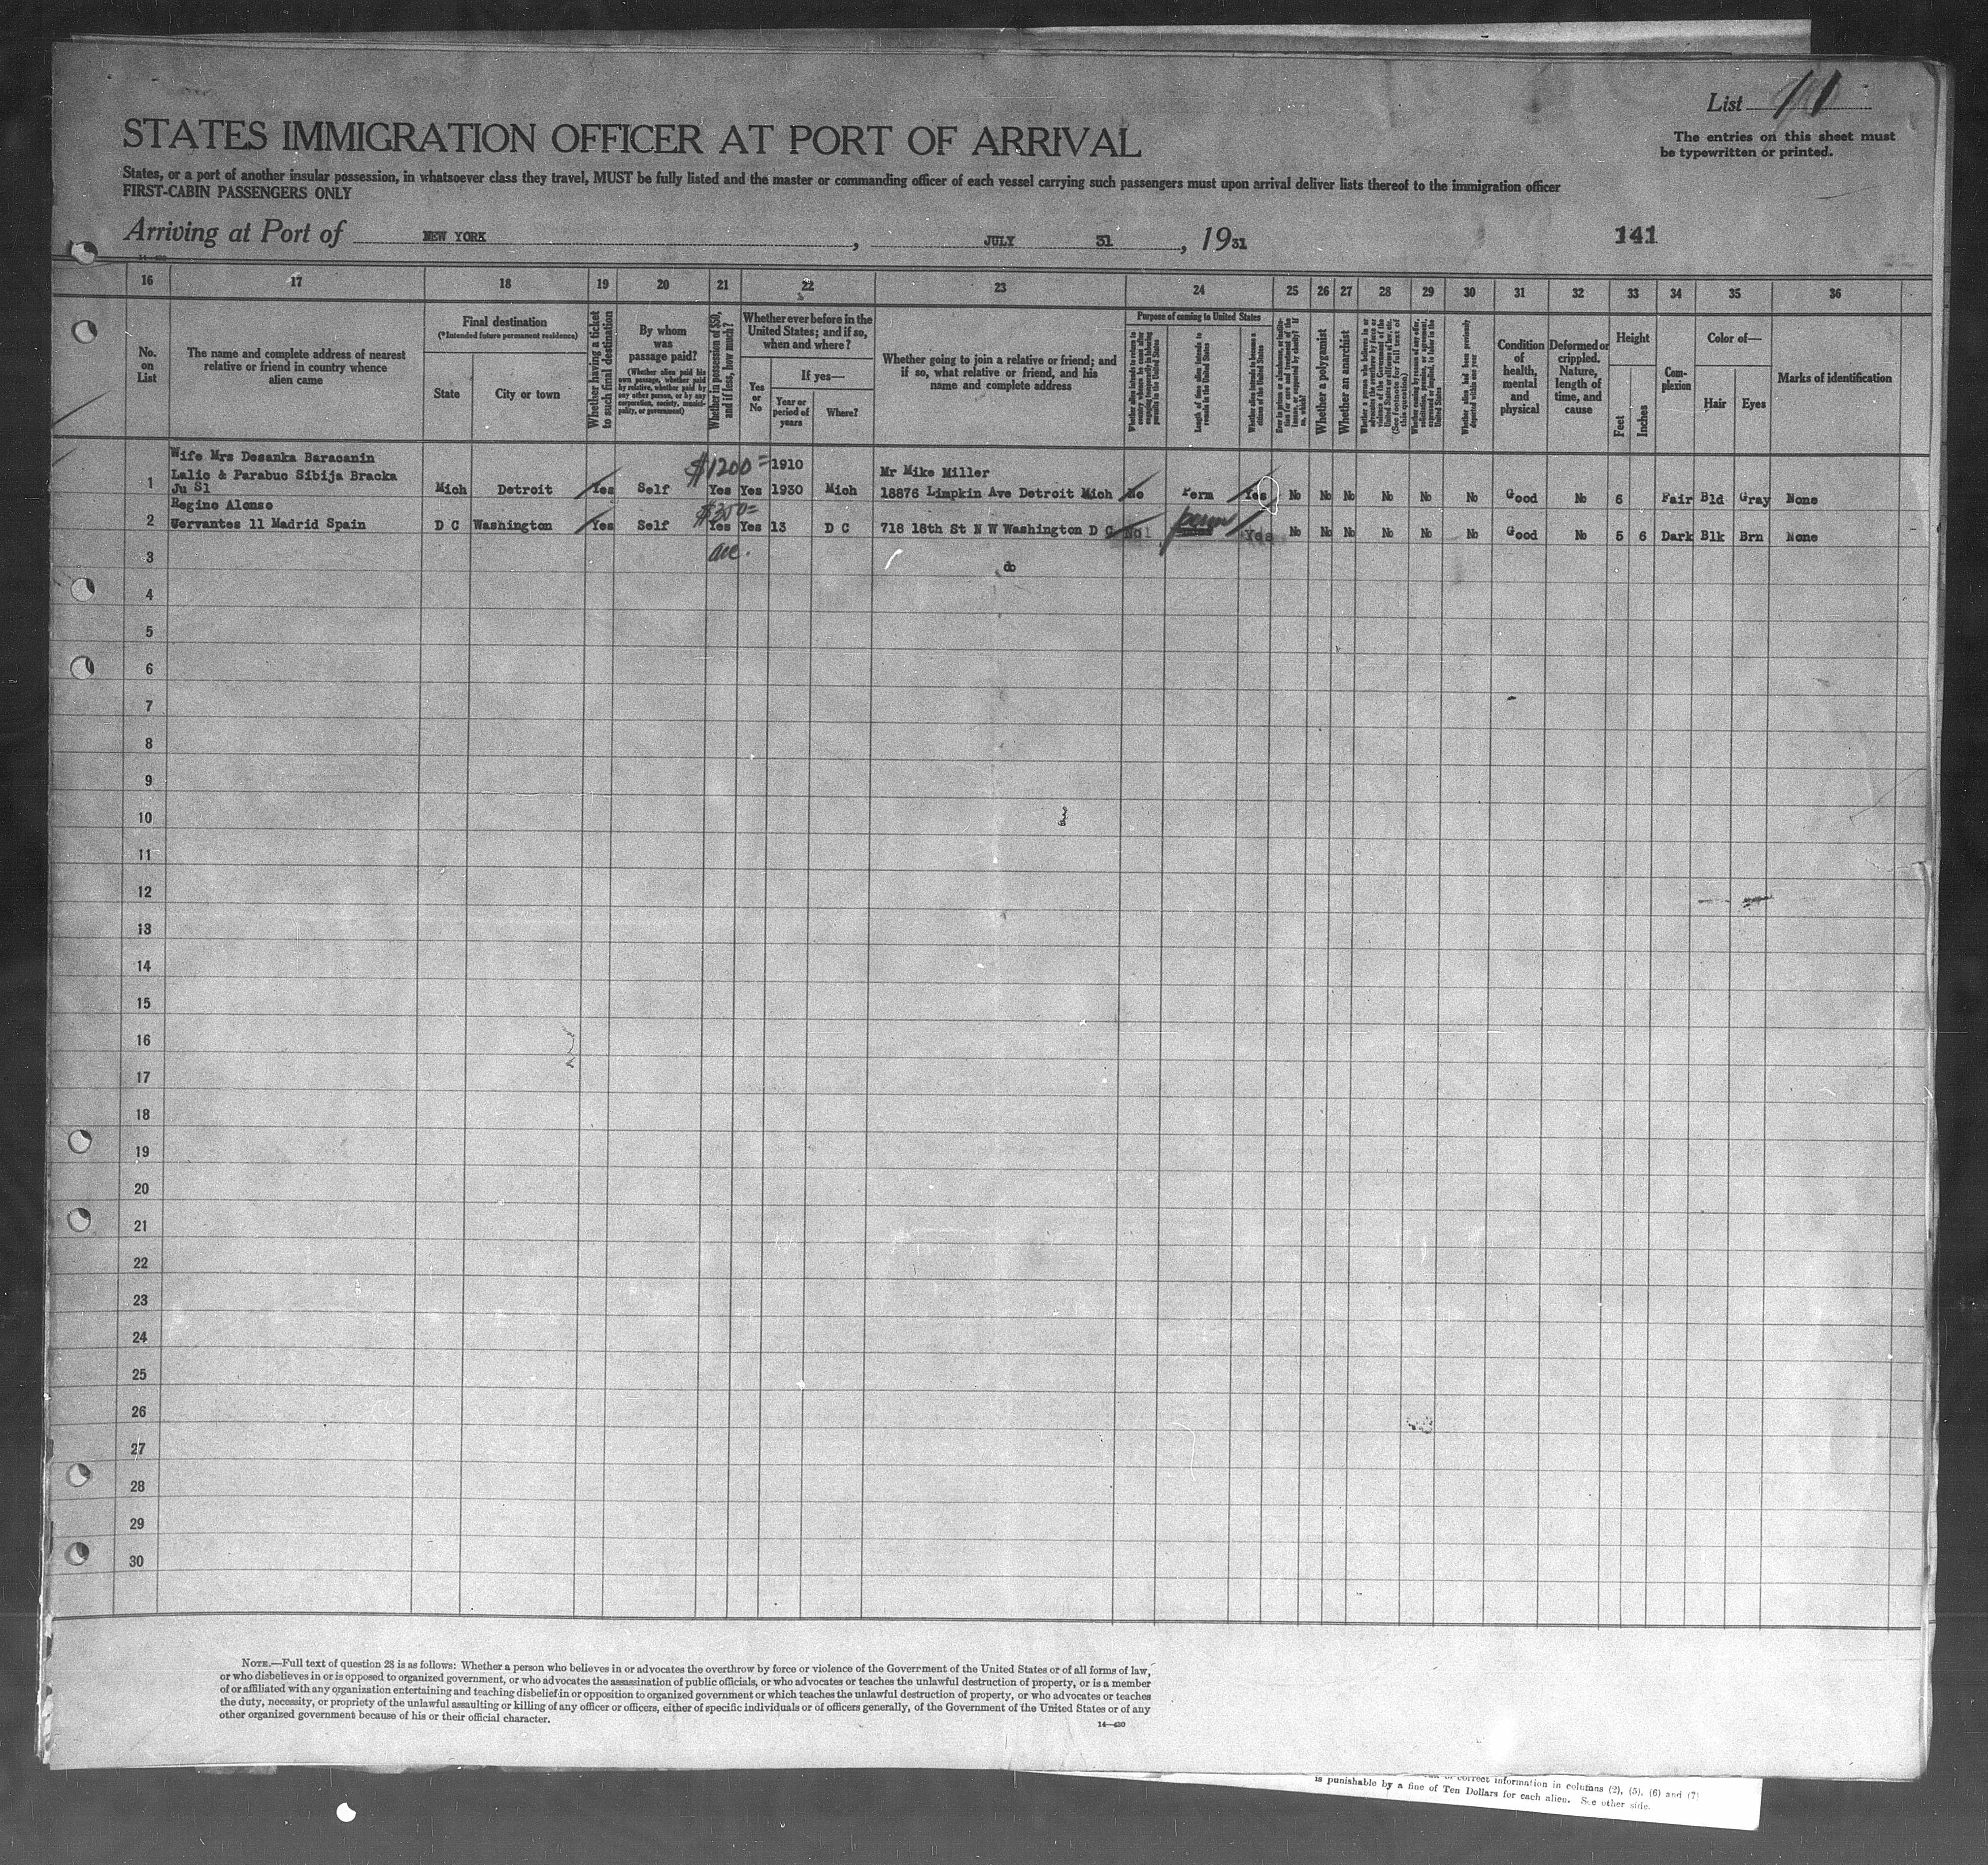 List 11
The entries on this sheet must
be typewritten or printed.
STATES IMMIGRATION OFFICER AT PORT OF ARRIVAL
States, or a port of another insular possession, in whatsoever class they travel, MUST be fully listed and the master or commanding officer of each vessel carrying such passengers must upon arrival deliver lists thereof to the immigration officer
FIRST-CABIN PASSENGERS ONLY
Arriving at Port of NEW YORK, JULY 31, 1931
141
16 17 18 19 20 21 22 23 24 25 26 27 28 29 30 31 32 33 34 35 36
No. on List
The name and complete address of nearest
relative or friend in country whence
alien came
Final destination
(*Intended future permanent residence)
State
City or town
Whether having a ticket
to such final destination
By whom
was
passage paid?
(Whether alien paid his
own passage, whether paid
by relative, whether paid by
any other person, or by any
corporation, society, munici-
pality, or government)
Whether in possession of $50,
and if less, how much?
Whether ever before in the
United States; and if so,
when and where?
Yes
or
No
If yes—
Year or
period of
years
Where?
Whether going to join a relative or friend; and
if so, what relative or friend, and his
name and complete address
Purpose of coming to United States
Length of time alien intends to
remain in the United States
Whether alien intends to become a
citizen of the United States
Whether a polygamist
Whether an anarchist
Condition
of
health,
mental
and
physical
Deformed or
crippled.
Nature,
length of
time, and
cause
Height
Feet
Inches
Com-
plexion
Color of—
Hair
Eyes
Marks of identification
Wife Mrs Desanka Baracanin
Lalic & Parabuc Sibija Bracka
Ju Sl
1 Mich Detroit Yes Self $1200= Yes Yes 1910
1930 Mich Mr Mike Miller
18876 Limpkin Ave Detroit Mich No Perm Yes No No No No No No Good No 6 Fair Bld Gray None
Regino Alonso
2 Cervantes 11 Madrid Spain D C Washington Yes Self $300= Yes Yes 13 D C 718 18th St N W Washington D C No perm Yes No No No No No No Good No 5 6 Dark Blk Brn None
3
do
4
5
6
7
8
9
10
11
12
13
14
15
16
17
18
19
20
21
22
23
24
25
26
27
28
29
30
NOTE.—Full text of question 28 is as follows: Whether a person who believes in or advocates the overthrow by force or violence of the Government of the United States or of all forms of law,
or who disbelieves in or is opposed to organized government, or who advocates the assassination of public officials, or who advocates or teaches the unlawful destruction of property, or is a member
of or affiliated with any organization entertaining and teaching disbelief in or opposition to organized government or which teaches the unlawful destruction of property, or who advocates or teaches
the duty, necessity, or propriety of the unlawful assaulting or killing of any officer or officers, either of specific individuals or of officers generally, of the Government of the United States or of any
other organized government because of his or their official character.
14—430
correct information in columns (2), (5), (6) and (7)
is punishable by a fine of Ten Dollars for each alien. See other side.